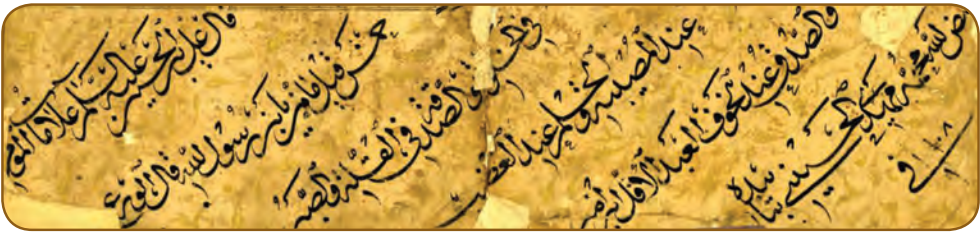 قال علي بن الحسين عليه السلام علامات المؤمن
خمس قيل ما هي يا بن رسول الله قال الورع
في الخلوة والصدقة في القلة والصبر
عند المصيبة والحلم عند الغضب
والصدق عند الخوف العبد الاقل
الحسيني
في